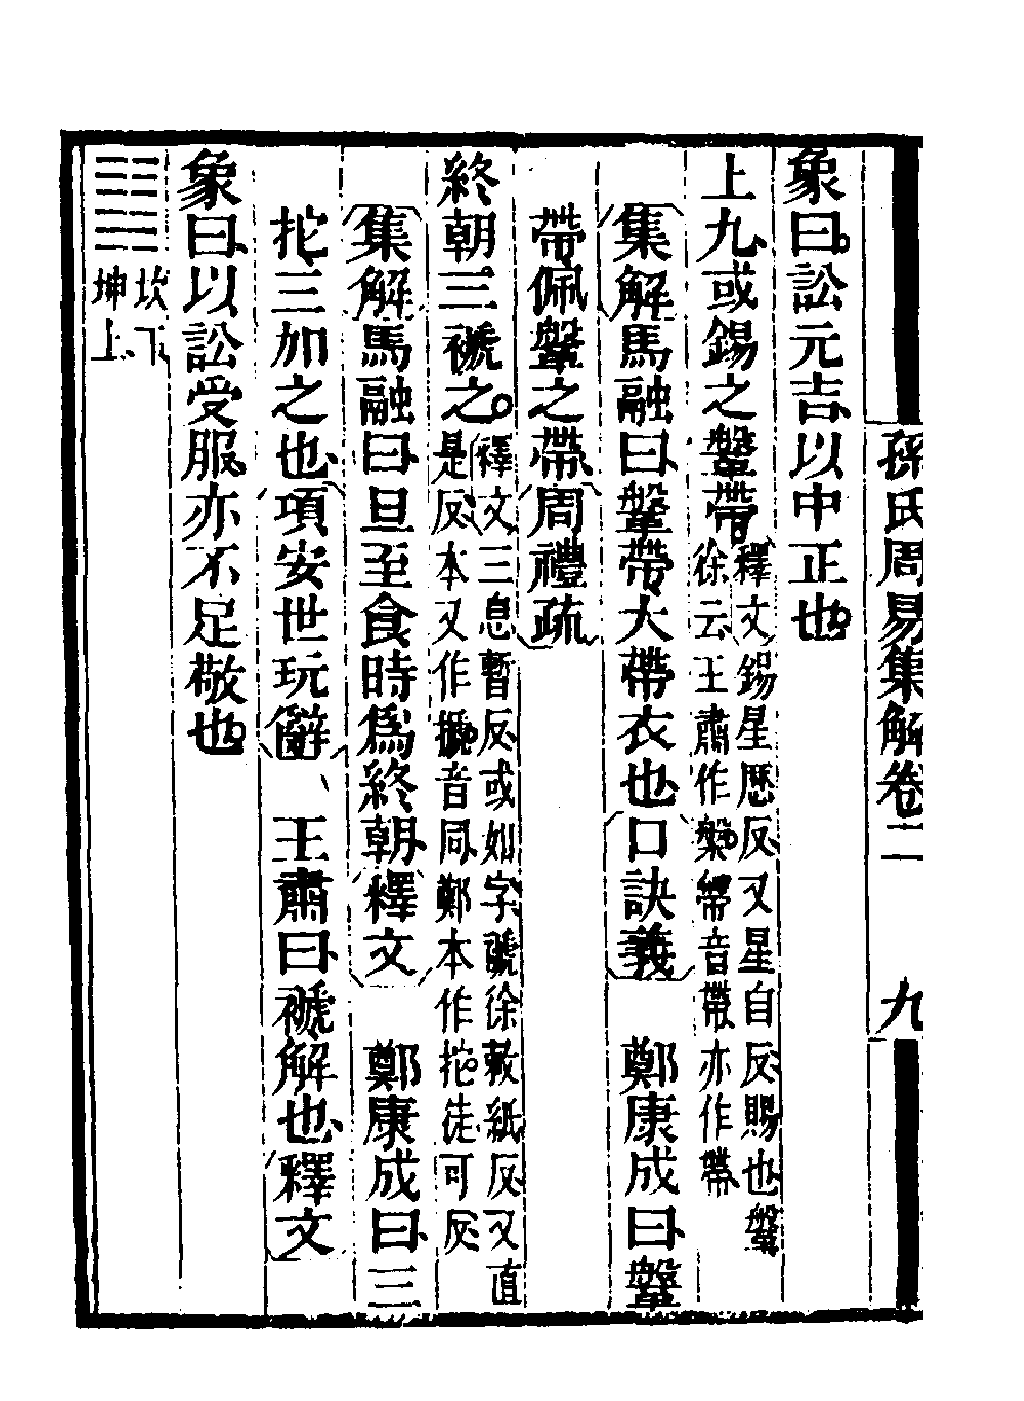 孫氏周易集解卷二 九
象曰訟元吉以中正也
上九或錫之鞶帶釋文錫星歷反又星自反賜也鞶
徐云王肅作槃帶音帶亦作帶
集解馬融曰鞶帶大帶衣也口訣義 鄭康成曰鞶
帶佩鞶之帶周禮疏
終朝三褫之釋文三息暫反或如字褫徐敕紙反又直
是反本又作搋音同鄭本作拕徒可反
集解馬融曰旦至食時爲終朝釋文 鄭康成曰三
拕三加之也項安世玩辭 王肅曰褫解也釋文
象曰以訟受服亦不足敬也
坎下
坤上